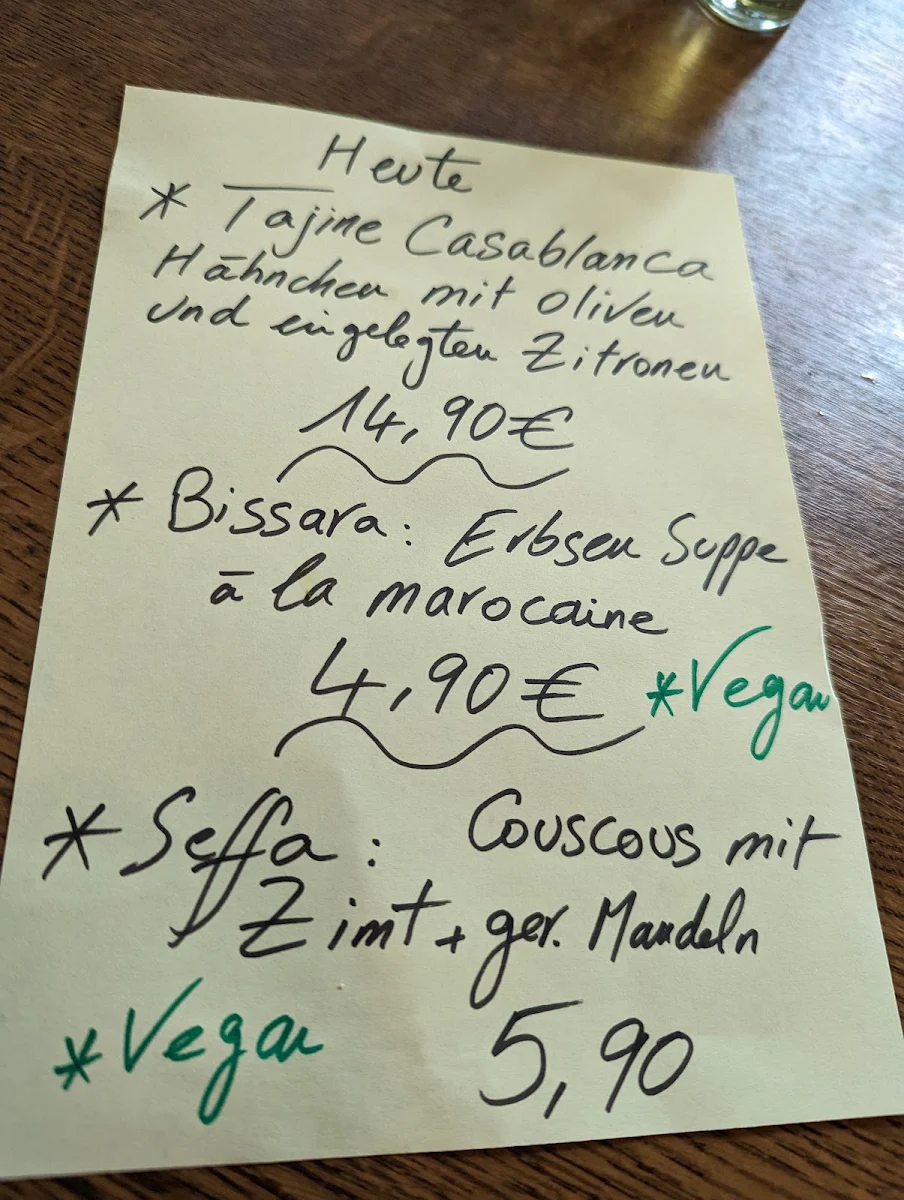 Heute
* Tajine Casablanca
Hähnchen mit oliven
und eingelegten Zitronen
14,90€
* Bissara: Erbsen Suppe
à la marocaine
4,90€ *Vegan
* Seffa: Couscous mit
Zimt + ger. Mandeln
*Vegan 5,90